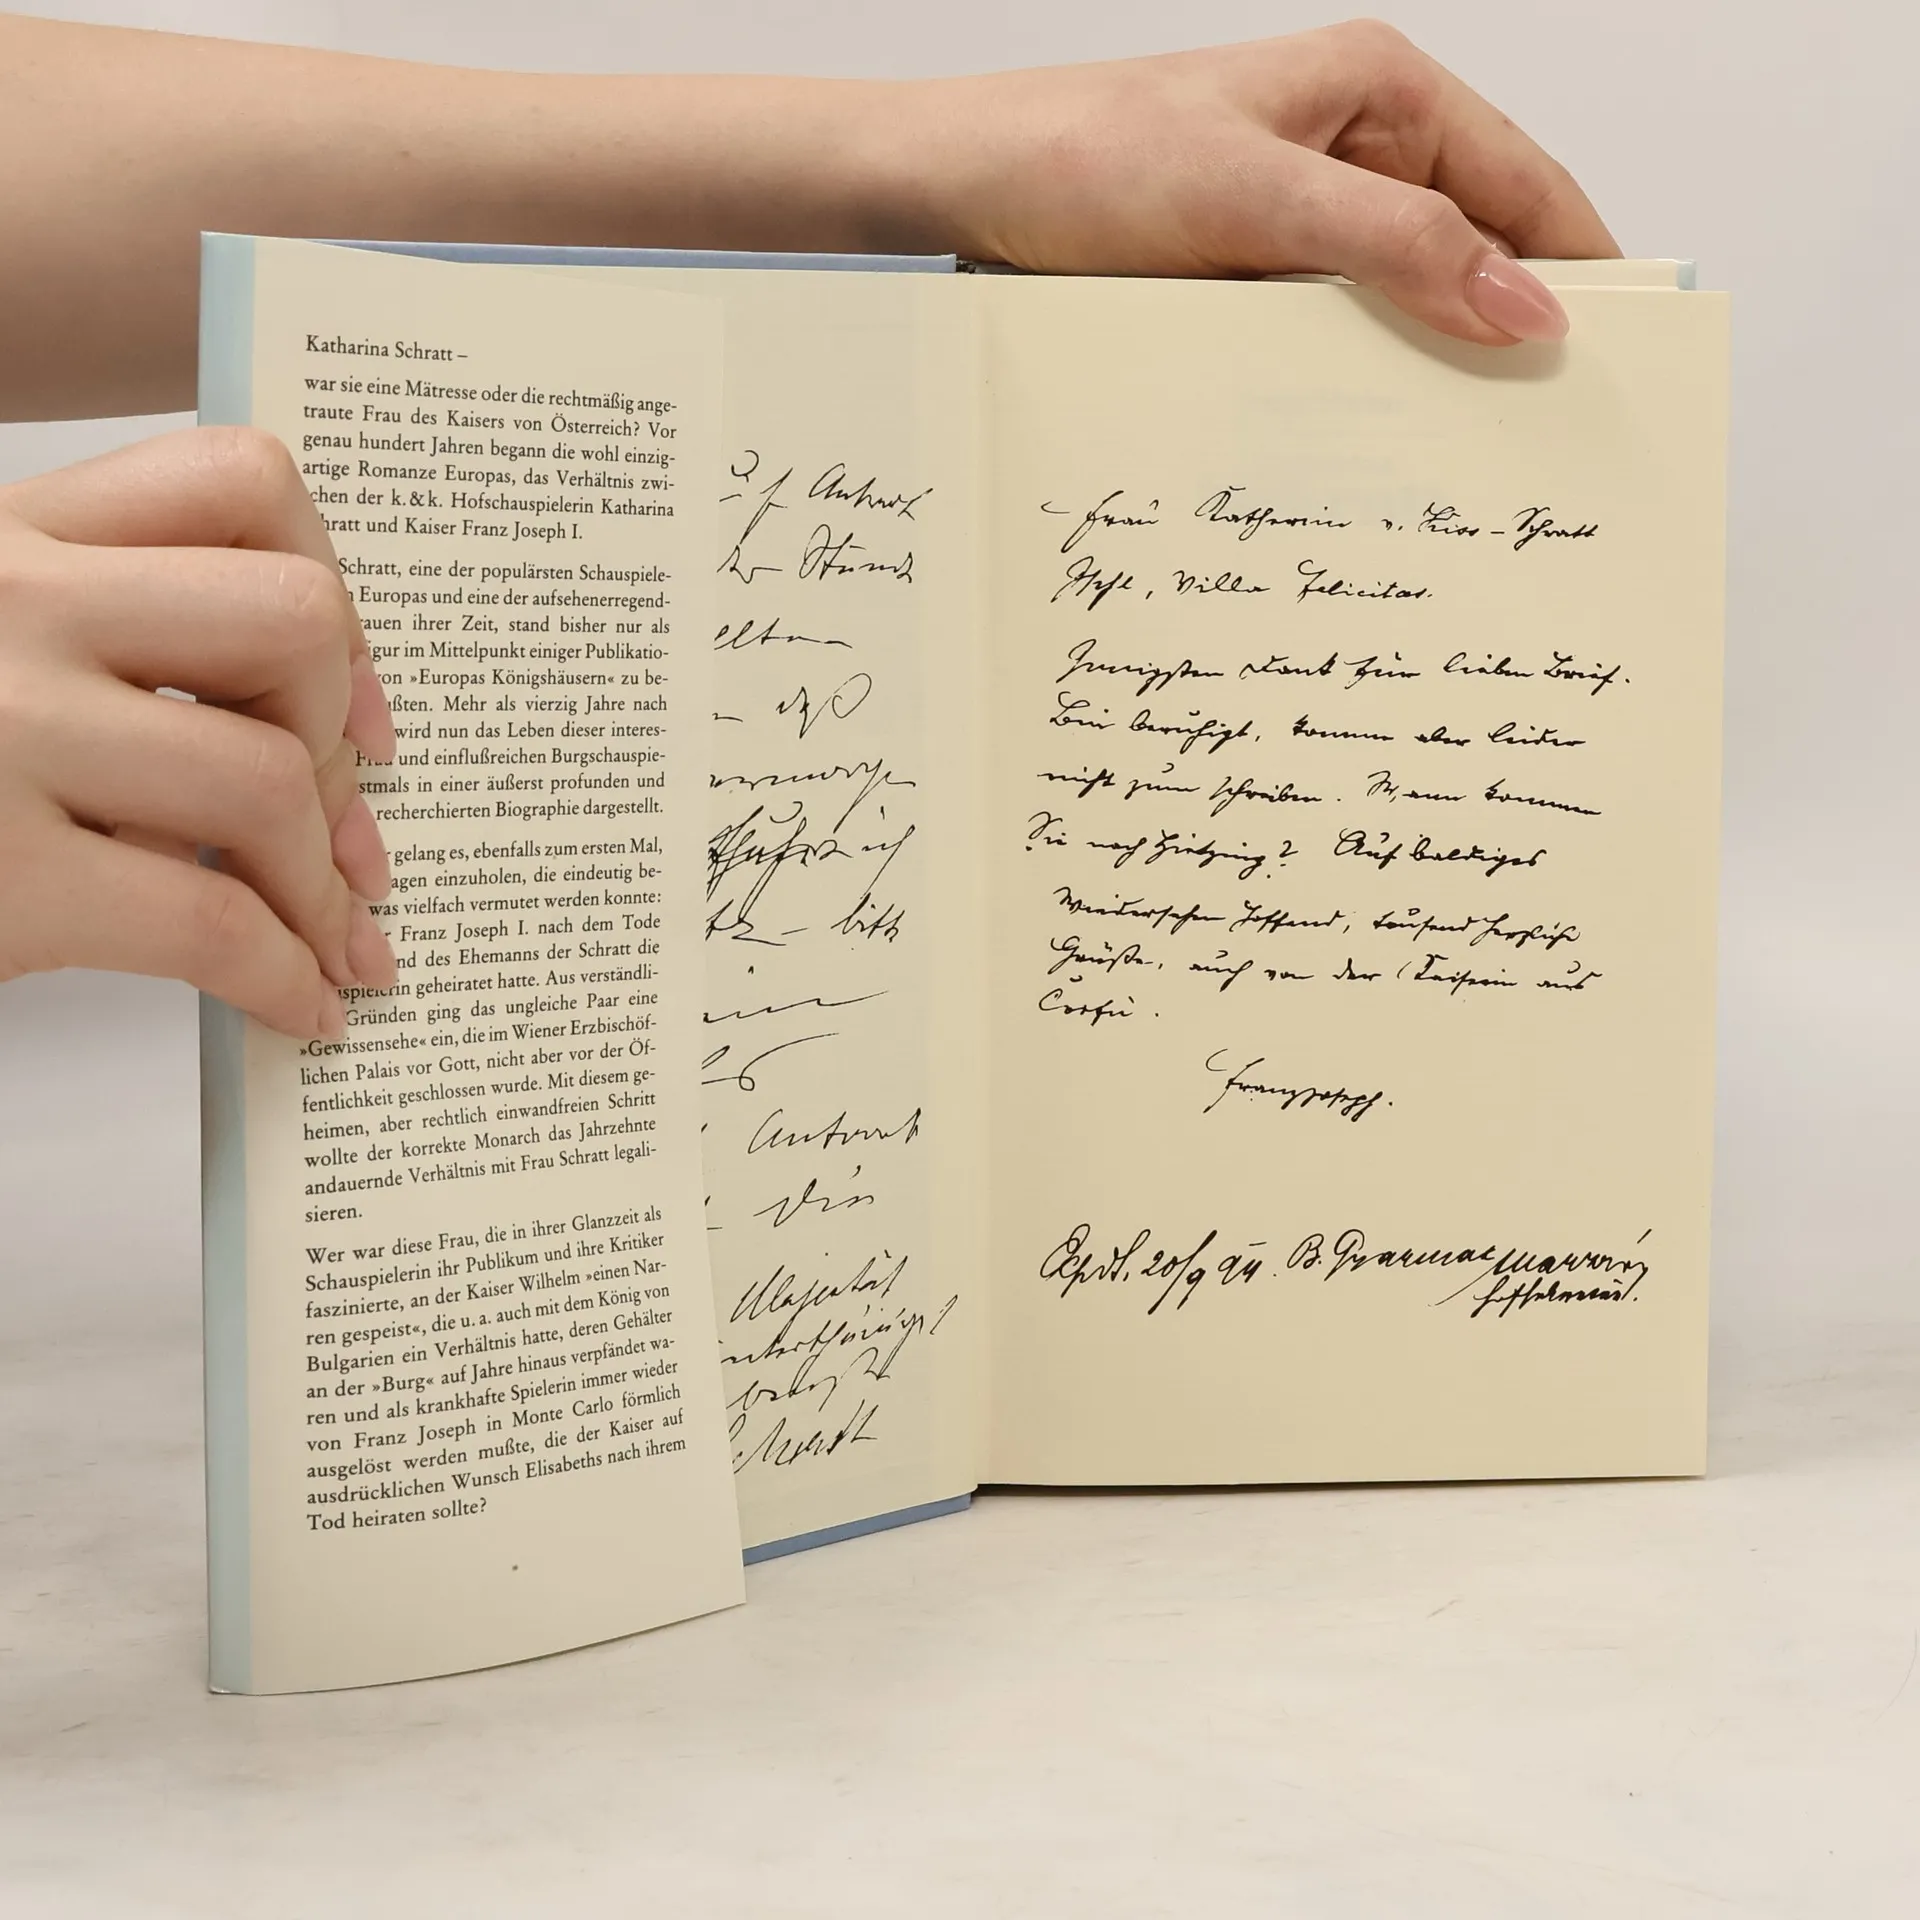 Katharina Schratt –
war sie eine Mätresse oder die rechtmäßig ange-
traute Frau des Kaisers von Österreich? Vor
genau hundert Jahren begann die wohl einzig-
artige Romanze Europas, das Verhältnis zwi-
chen der k. & k. Hofschauspielerin Katharina
hratt und Kaiser Franz Joseph I.
Schratt, eine der populärsten Schauspiele-
Europas und eine der aufsehenerregend-
rauen ihrer Zeit, stand bisher nur als
igur im Mittelpunkt einiger Publikatio-
von »Europas Königshäusern« zu be-
ßten. Mehr als vierzig Jahre nach
wird nun das Leben dieser interes-
Frau und einflußreichen Burgschauspie-
stmals in einer äußerst profunden und
recherchierten Biographie dargestellt.
gelang es, ebenfalls zum ersten Mal,
agen einzuholen, die eindeutig be-
was vielfach vermutet werden konnte:
Franz Joseph I. nach dem Tode
nd des Ehemanns der Schratt die
spielerin geheiratet hatte. Aus verständli-
Gründen ging das ungleiche Paar eine
»Gewissensehe« ein, die im Wiener Erzbischöf-
lichen Palais vor Gott, nicht aber vor der Öf-
fentlichkeit geschlossen wurde. Mit diesem ge-
heimen, aber rechtlich einwandfreien Schritt
wollte der korrekte Monarch das Jahrzehnte
andauernde Verhältnis mit Frau Schratt legali-
sieren.
Wer war diese Frau, die in ihrer Glanzzeit als
Schauspielerin ihr Publikum und ihre Kritiker
faszinierte, an der Kaiser Wilhelm »einen Nar-
ren gespeist«, die u. a. auch mit dem König von
Bulgarien ein Verhältnis hatte, deren Gehälter
an der »Burg« auf Jahre hinaus verpfändet wa-
ren und als krankhafte Spielerin immer wieder
von Franz Joseph in Monte Carlo förmlich
ausgelöst werden mußte, die der Kaiser auf
ausdrücklichen Wunsch Elisabeths nach ihrem
Tod heiraten sollte?
Antwort
Stunde
elten
bitte
Antwort
Die
Majestät
Schratt
Frau Katherina v. Kiss-Schratt
Ischl, Villa Felicitas.
Innigsten Dank für lieben Brief.
Bin beruhigt, komme aber leider
nicht zum schreiben. Wann kommen
Sie nach Hietzing? Auf baldiges
Wiedersehen hoffend, tausend herzliche
Grüße, auch von der Kaiserin aus
Corfu.
Franz Joseph.
Expdt. 20/9 94. B.